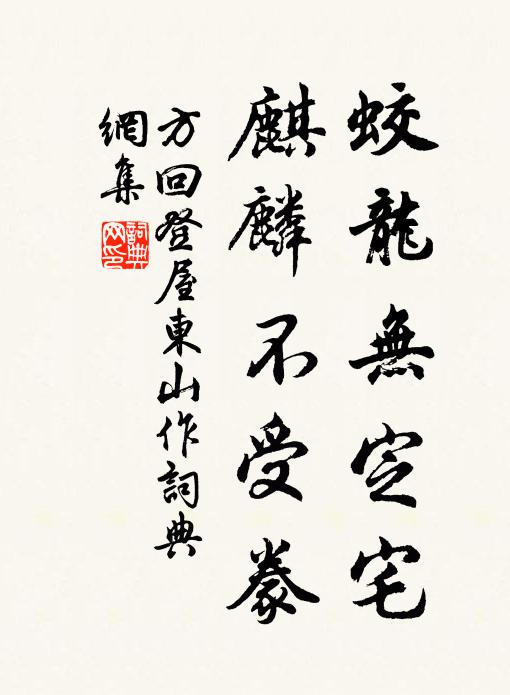 蛟龍無定宅
麒麟不受豢
方回登屋東山作詞典
網集
詞典网印